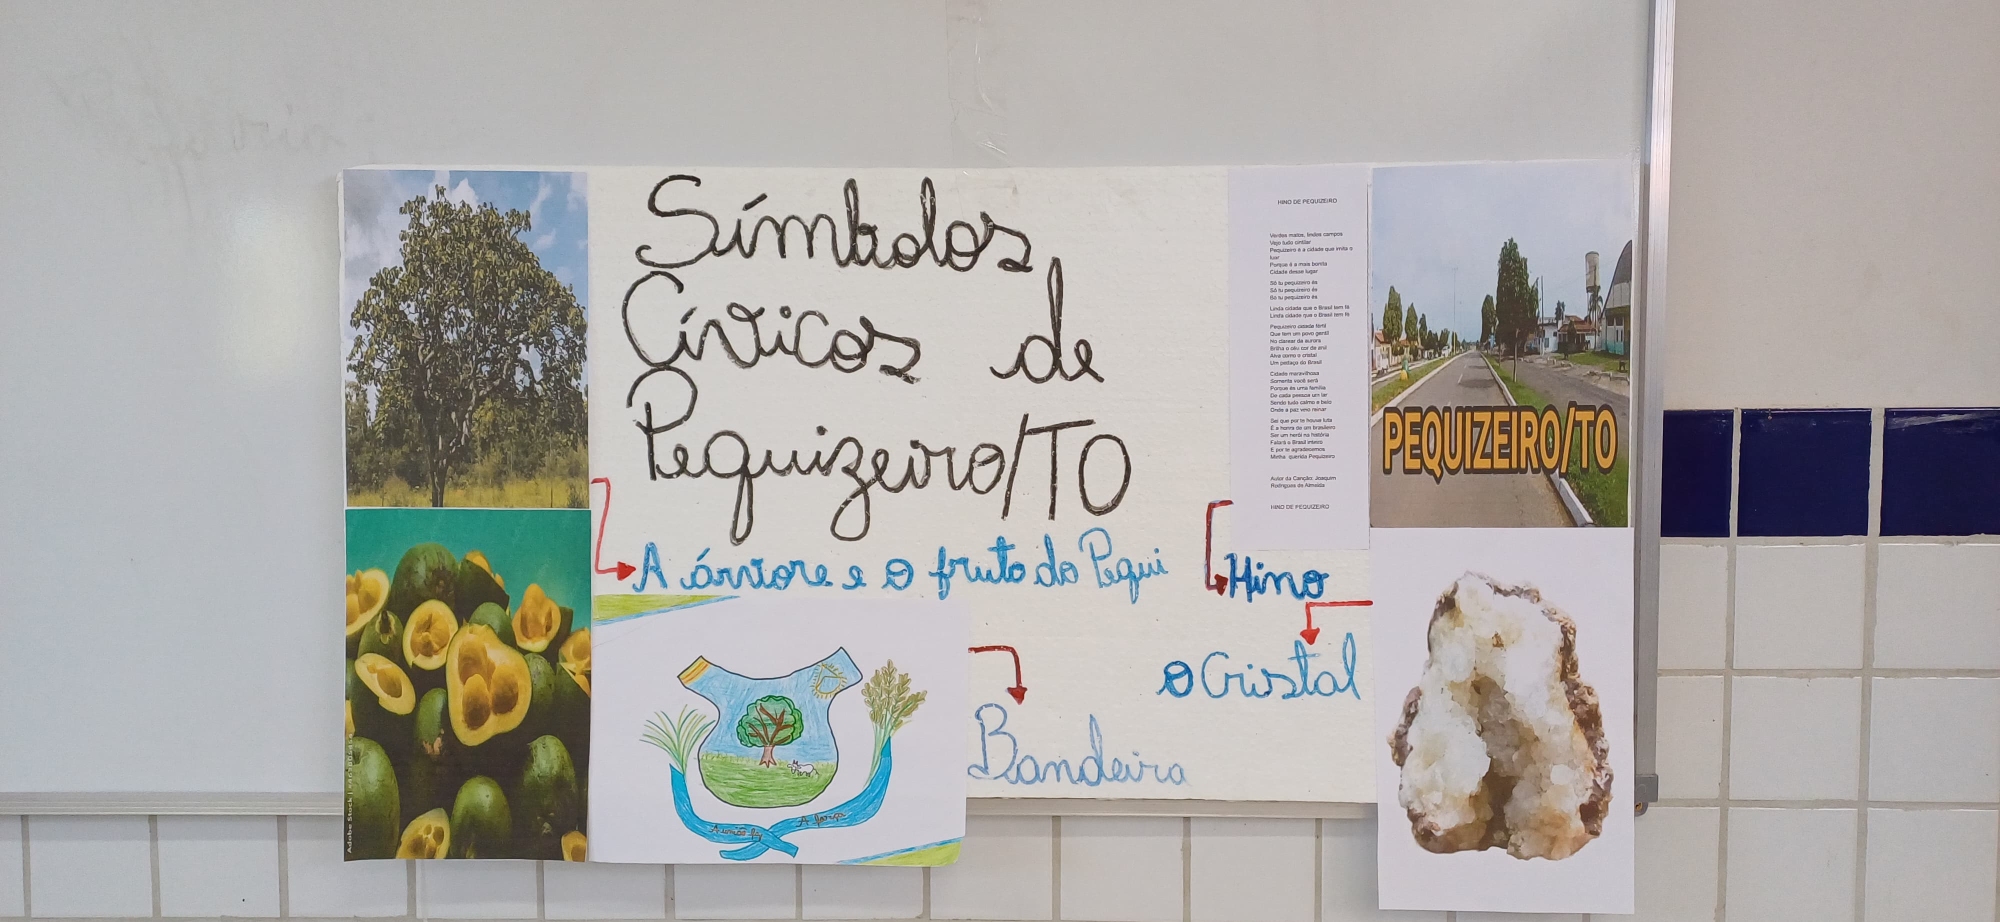 Símbolos
Cívicos de
Pequizeiro/TO
A árvore e o fruto do Pequi
Hino
O Cristal
Bandeira
A união faz
A força
Adobe Stock
PEQUIZEIRO/TO
HINO DE PEQUIZEIRO
Verdes matos, lindos campos
Vejo tudo cintilar
Pequizeiro é a cidade que imita o
luar
Porque é a mais bonita
Cidade desse lugar
Só tu pequizeiro és
Só tu pequizeiro és
Só tu pequizeiro és
Linda cidade que o Brasil tem fé
Linda cidade que o Brasil tem fé
Pequizeiro cidade fértil
Que tem um povo gentil
No clarear da aurora
Brilha o céu cor de anil
Alva como o cristal
Um pedaço do Brasil
Cidade maravilhosa
Somente você será
Porque és uma família
De cada pessoa um lar
Sendo tudo calmo e belo
Onde a paz veio reinar
Sei que por te houve luta
É a honra de um brasileiro
Ser um herói na história
Falará o Brasil inteiro
E por te agradecemos
Minha querida Pequizeiro
Autor da Canção: Joaquim
Rodrigues de Almeida
HINO DE PEQUIZEIRO